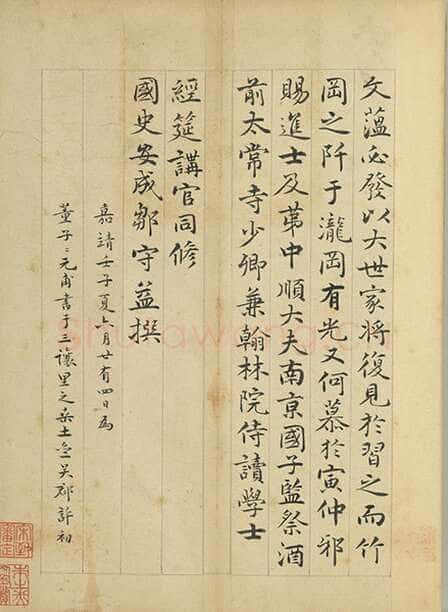 文蕰必發以大世家將復見於習之而竹
岡之阡于瀧岡有光又何慕於寅仲邪
賜進士及苐中順大夫南京國子監祭酒
前太常寺少卿兼翰林院侍讀學士
經筵講官同修
國史安成鄒守益撰
嘉靖壬子夏六月廿有四日為
董子〻元甫書于三讓里之桑土 吳郡許初